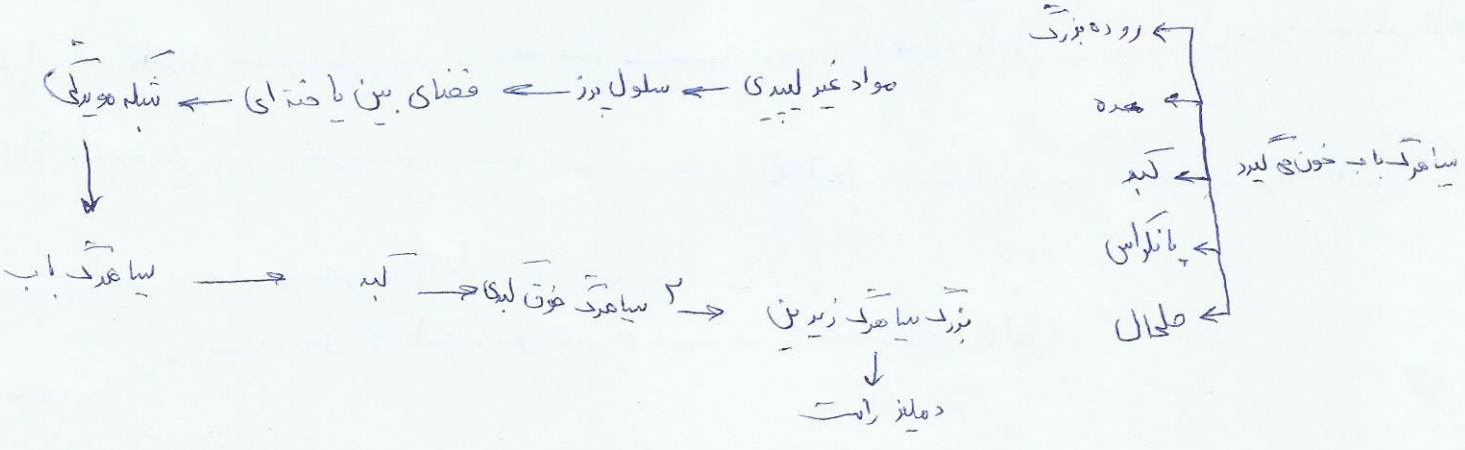 سیاهرگ باب خون می گیرد
← روده بزرگ
← معده
← کبد
← پانکراس
← طحال
مواد غیر لیپیدی ← سلول پرز ← فضای بین یاخته ای ← شبکه مویرگی
↓
سیاهرگ باب → کبد → ۲ سیاهرگ فوق کبدی → بزرگ سیاهرگ زیرین
↓
دهلیز راست